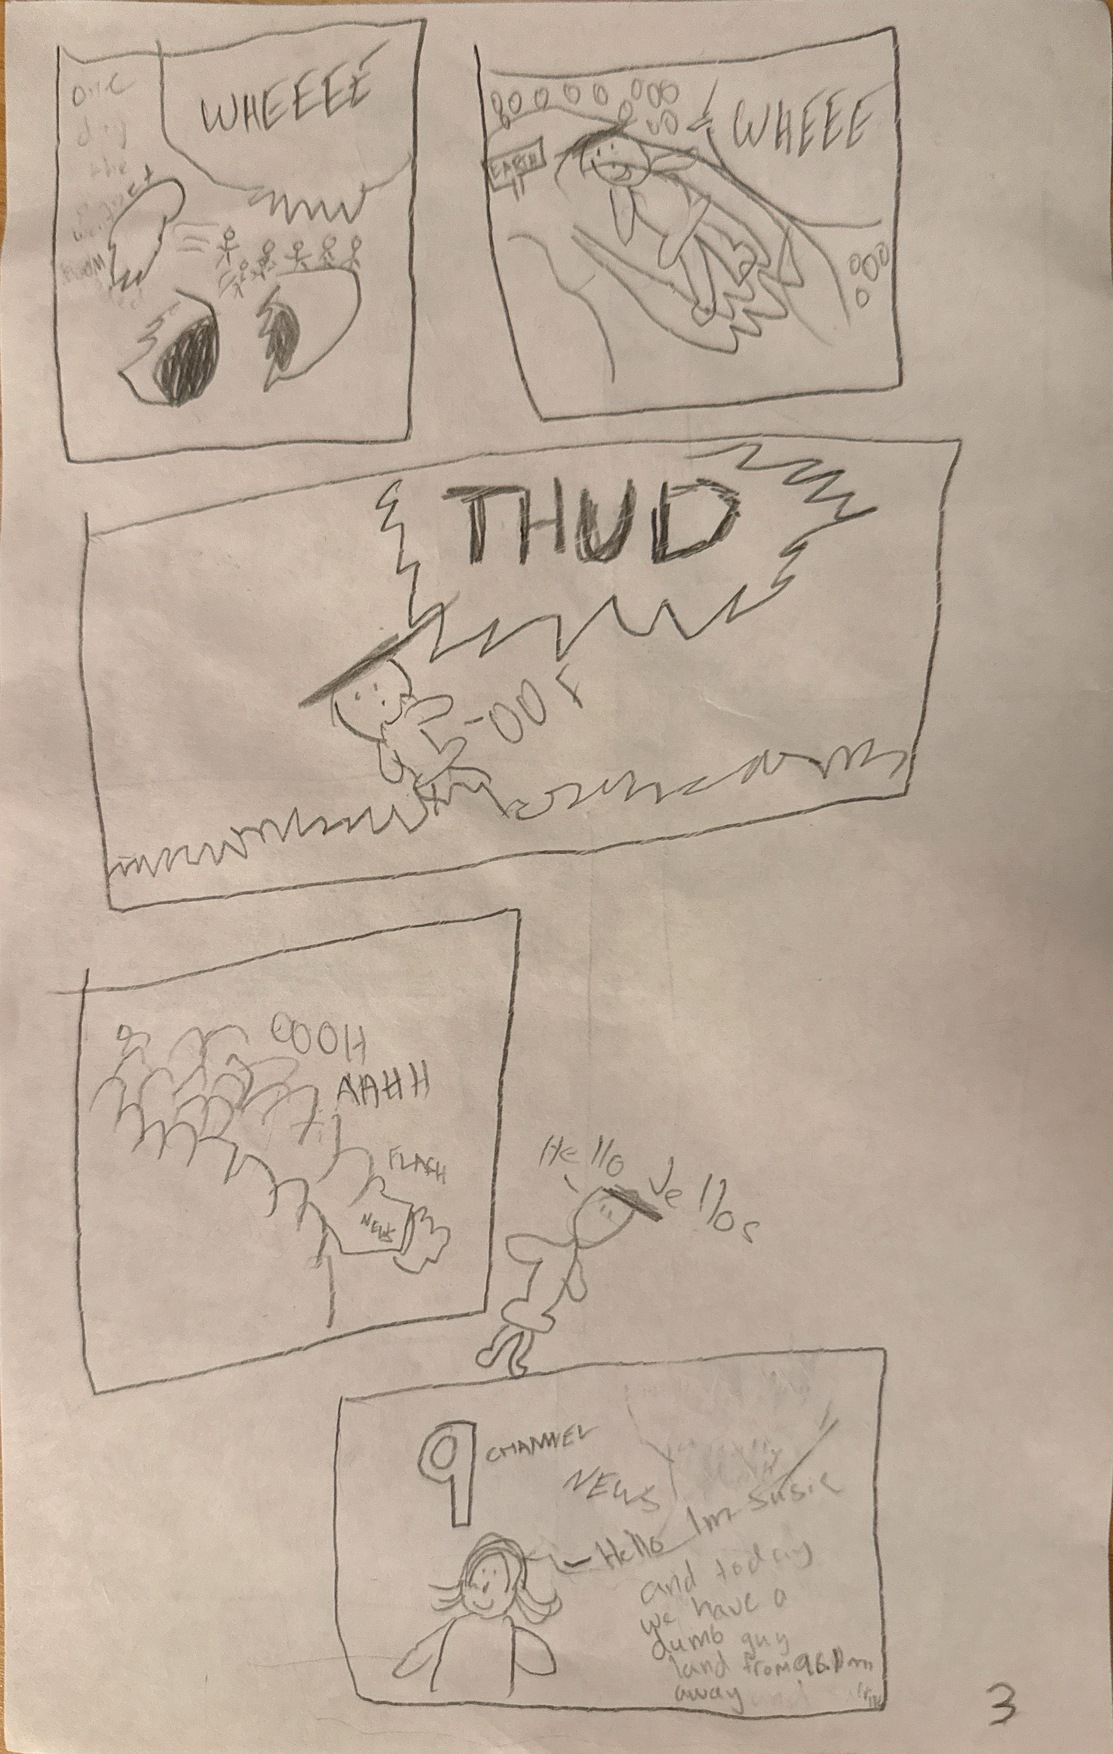 one
day
the
WHEEEE
EARTH
WHEEE
THUD
-OOF
OOOH
AAHH
FLASH
NEWS
Hello Jellos
9
CHANNEL
NEWS
Hello Im Susie
and today
we have a
dumb guy
land from
away
3